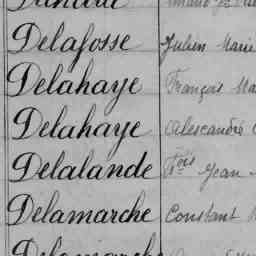 Delafosse Julien Marie
Delahaye François Ma
Delahaye Alexandre
Delalande Fçois Jean
Delamarche Constant